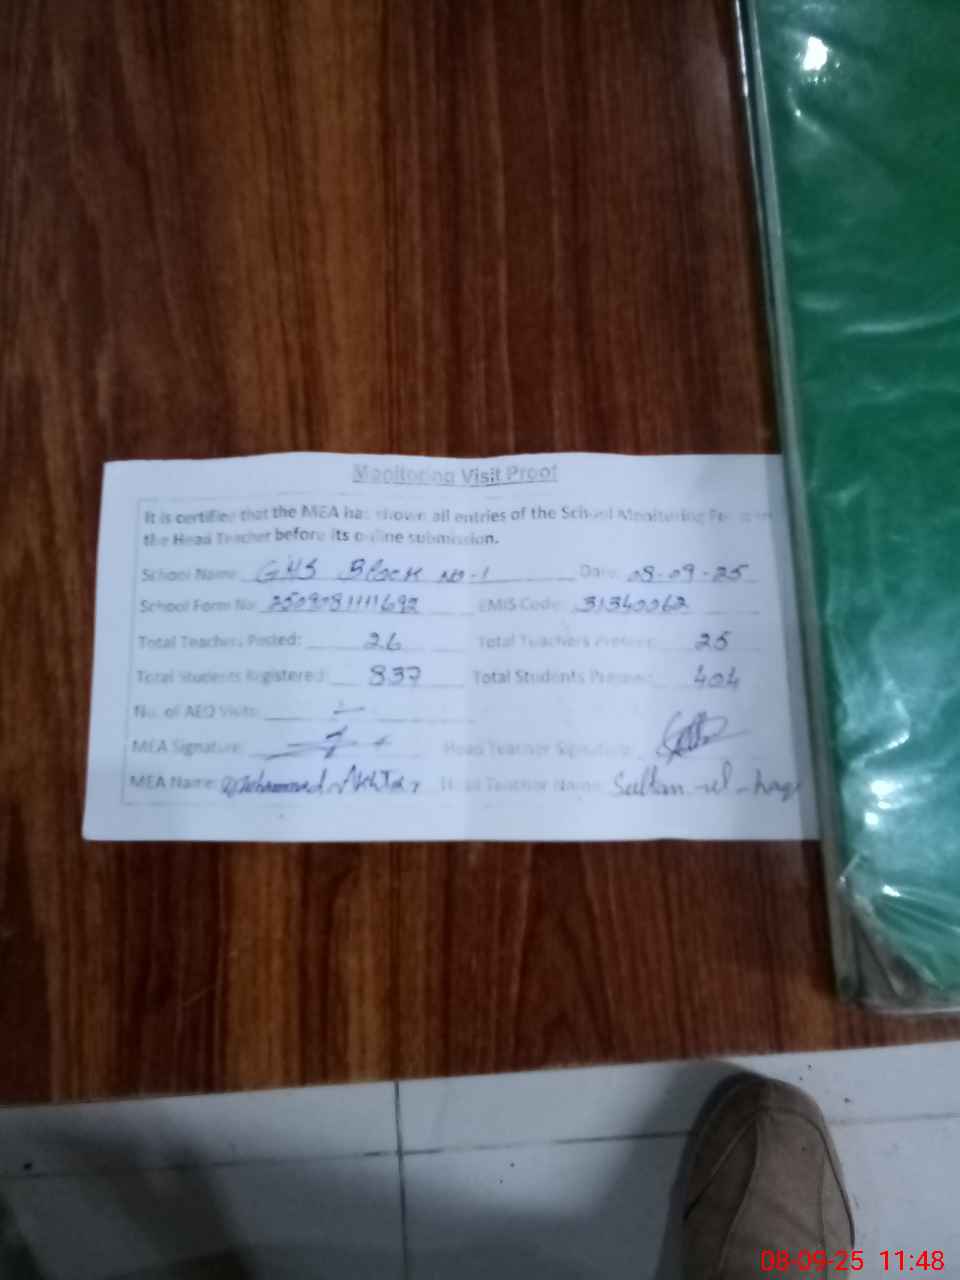 Monitoring Visit Proof
It is certified that the MEA has shown all entries of the School Monitoring Form to
the Head Teacher before its online submission.
School Name: GHS Block No-1 Date: 08-09-25
School Form No: 2509081111692 EMIS Code: 31340062
Total Teachers Posted: 26 Total Teachers Present: 25
Total Students Registered: 837 Total Students Present: 404
No. of AEO Visits:
MEA Signature: Head Teacher Signature:
MEA Name: Muhammad Akhtar Head Teacher Name: Sultan-ul-haq
08-09-25 11:48